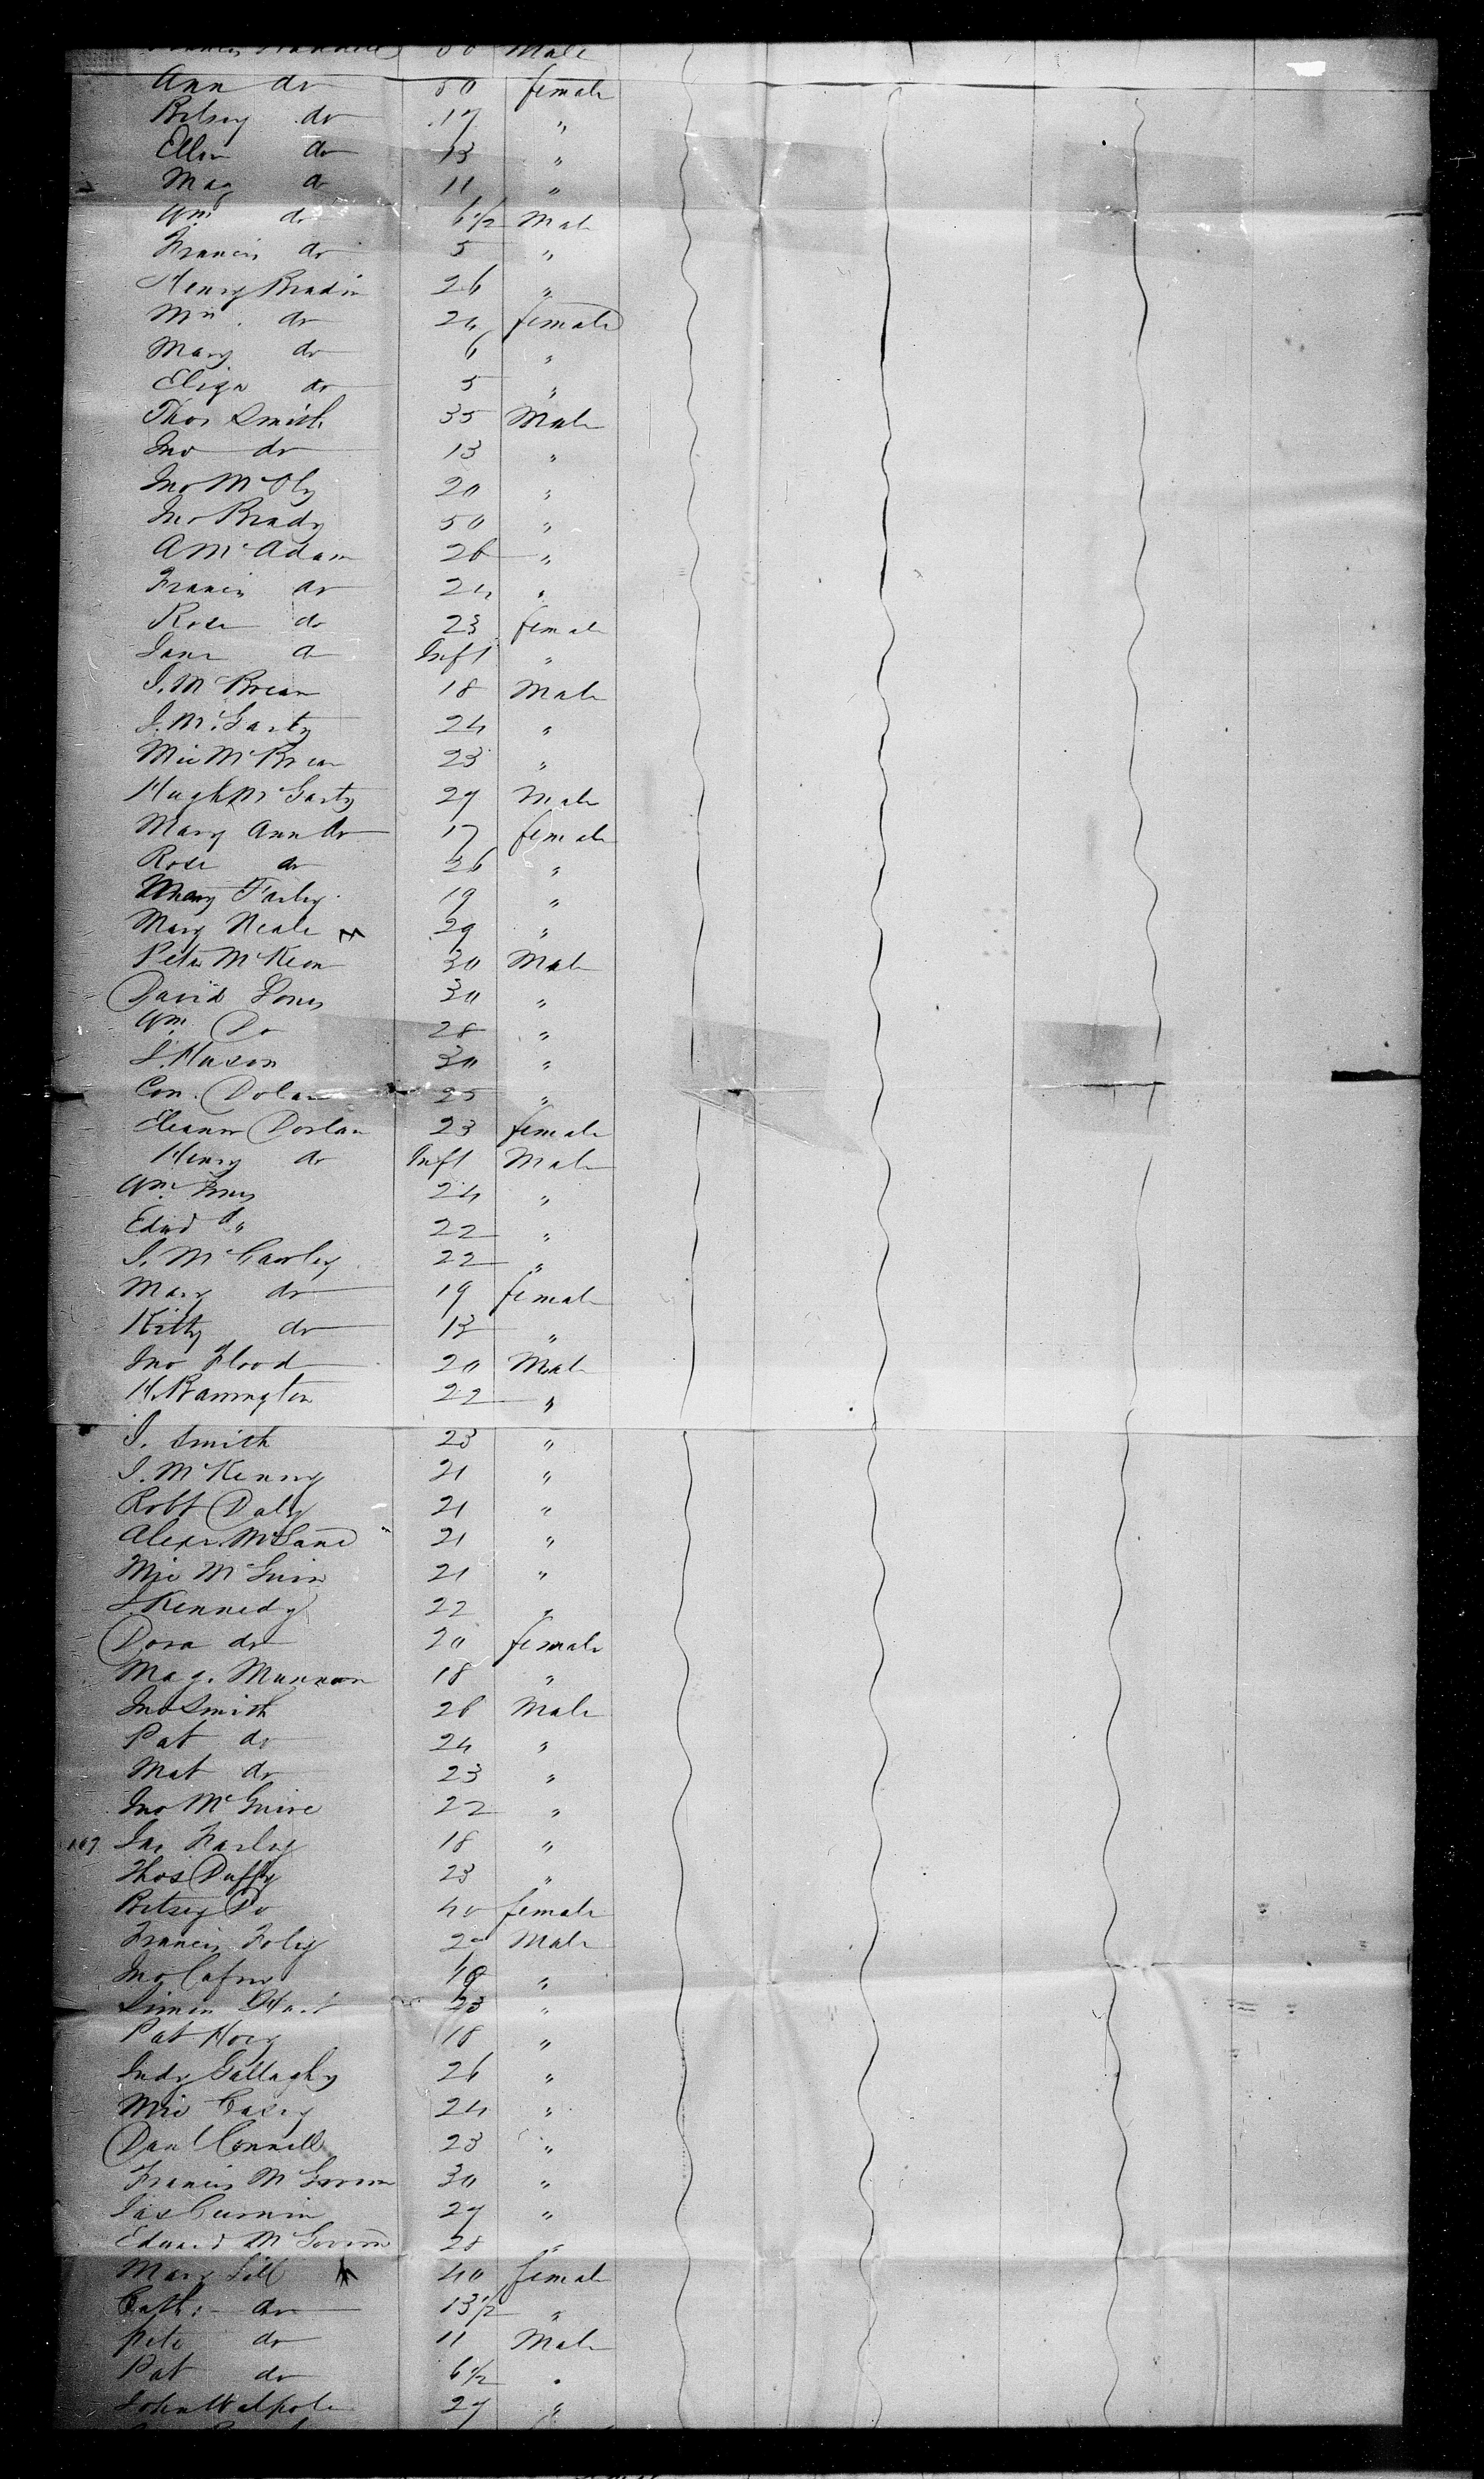 Male
Ann do 50 female
Betsey do 17 "
Ellen do 13 "
Mag do 11 "
Wm do 6 1/2 Male
Francis do 5 "
Henry Bradin 26 "
Mrs. do 24 female
Mary do 6 "
Eliza do 5 "
Thos Smith 35 Male
Jno do 13 "
Jno 20 "
Jno Brady 50 "
A McAdam 26 "
Francis do 24 "
Rose do 23 female
Jane do Inft "
J. McBrean 18 Male
J. McGarty 24 "
Mic McBrean 23 "
Hugh McGarty 27 Male
Mary Ann do 17 female
Rose do 26 "
Mary Farley 19 "
Mary Neale 29 "
Peter McKeon 30 Male
David Jones 30 "
Wm. Do 28 "
J. Mason 30 "
Con. Dolan 25 "
Eleanor Dorlan 23 female
Henry do Inft Male
Wm. Jones 24 "
Edwd do 22 "
J. McCawley 22 "
Mary do 19 female
Kitty do 13 "
Jno Flood 20 Male
H. Barrington 22 "
J. Smith 23 "
J. McKenny 21 "
Robt Daly 21 "
Alexr. McLane 21 "
Mic McGuire 21 "
J. Kennedy 22 "
Dora do 20 female
Mag. Munnon 18 "
Jno Smith 26 Male
Pat do 24 "
Mat do 23 "
Jno McGuire 22 "
Jas Farley 18 "
Thos Duffy 23 "
Betsey Do 40 female
Francis Foley 20 Male
Jno "
Simon Hart 23 "
Pat Hoey 18 "
Judy Gallaghy 26 "
Mic Casey 24 "
Danl Connell 23 "
Francis McGovern 30 "
Jas Curnin 27 "
Edward McGovern 28 "
Mary Lill 40 female
Cath: do 13 1/2 "
Pete do 11 Male
Pat do 6 1/2 "
John Walpole 27 "